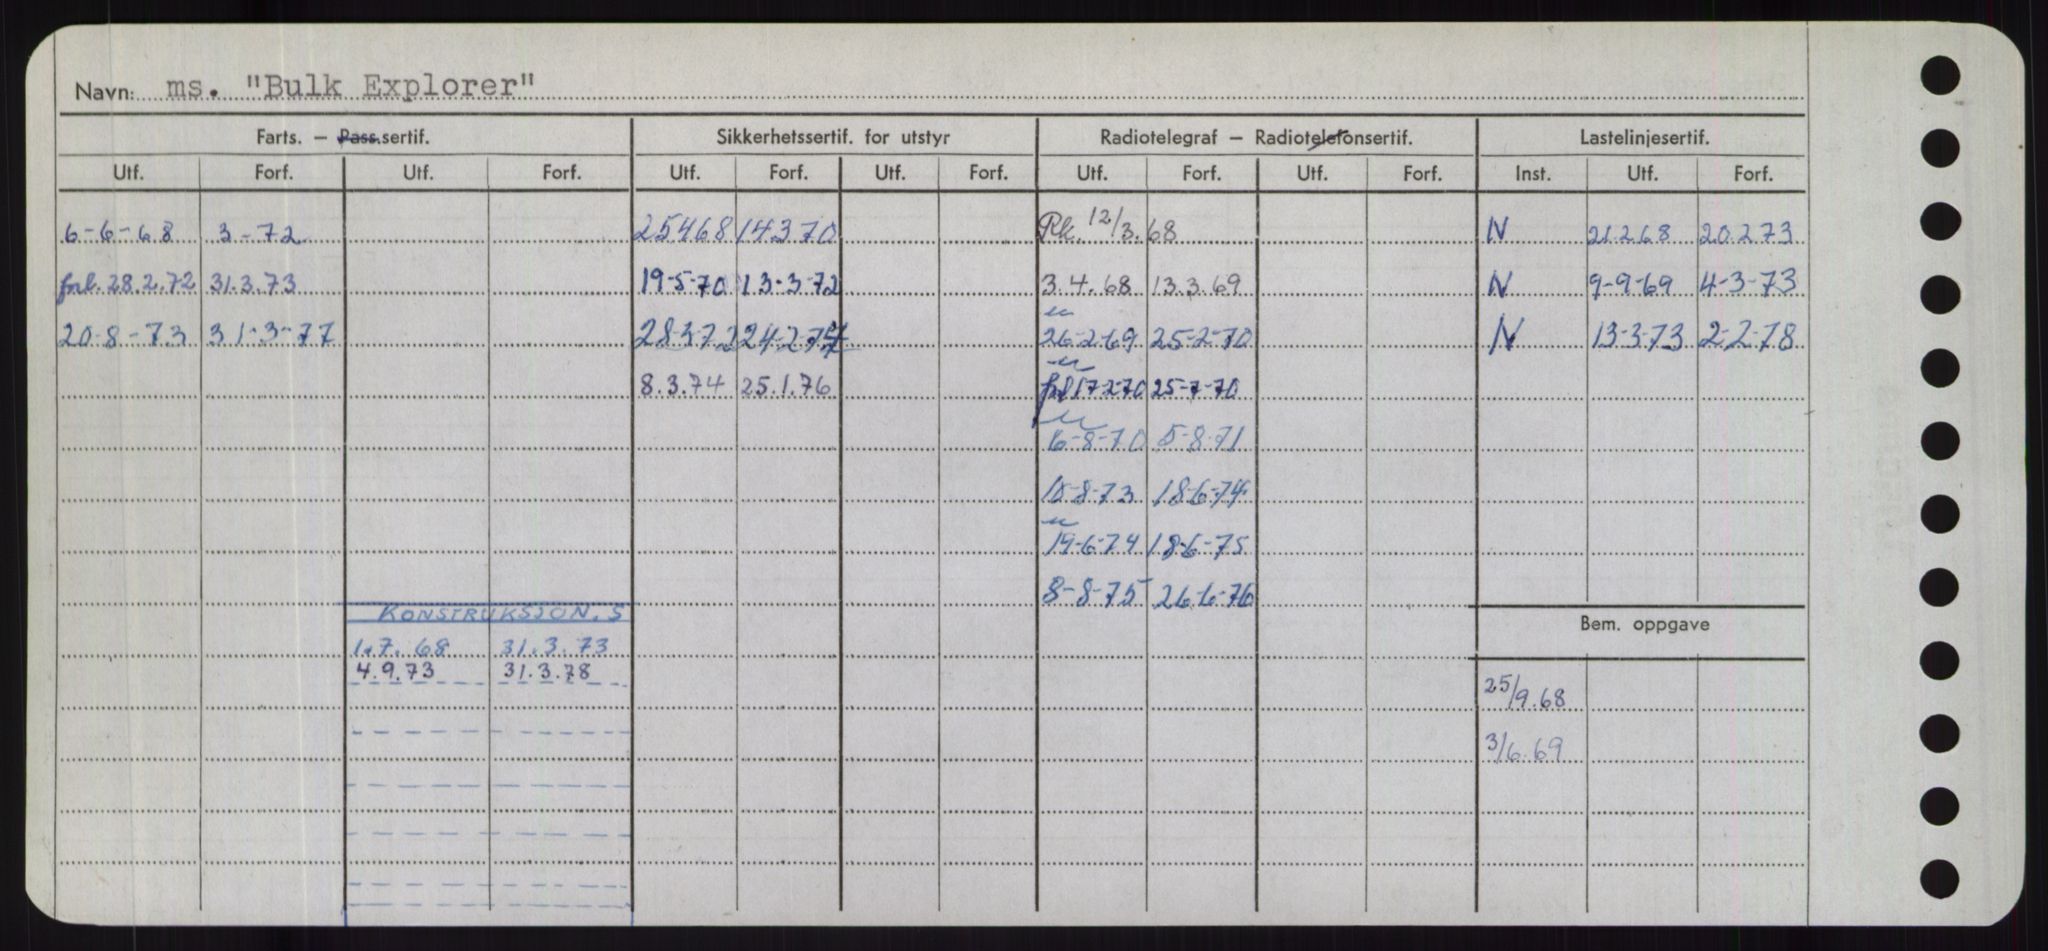 Navn: ms. "Bulk Explorer"
Farts. — Pass.sertif. Sikkerhetssertif. for utstyr Radiotelegraf — Radiotelefonsertif. Lastelinjesertif.
Utf. Forf. Utf. Forf. Utf. Forf. Utf. Forf. Utf. Forf. Utf. Forf. Inst. Utf. Forf.
6-6-68 3-72 25468 14370 Pk. 12/3.68 N 21.2.68 20.2.73
28.2.72 31.3.73 19-5-70 13-3-72 3.4.68 13.3.69 N 9-9-69 4-3-73
20-8-73 31-3-77 28372 24-2-74 26-2-69 25-2-70 N 13-3-73 2-2-78
8.3.74 25.1.76 17-2-70 25-7-70
6-8-70 5-8-71
18-6-74
19-6-74 18-6-75
8-8-75 26-6-76
KONSTRUKSJON.S
Bem. oppgave
1.7.68 31.3.73
4.9.73 31.3.78
25/9.68
3/6.69